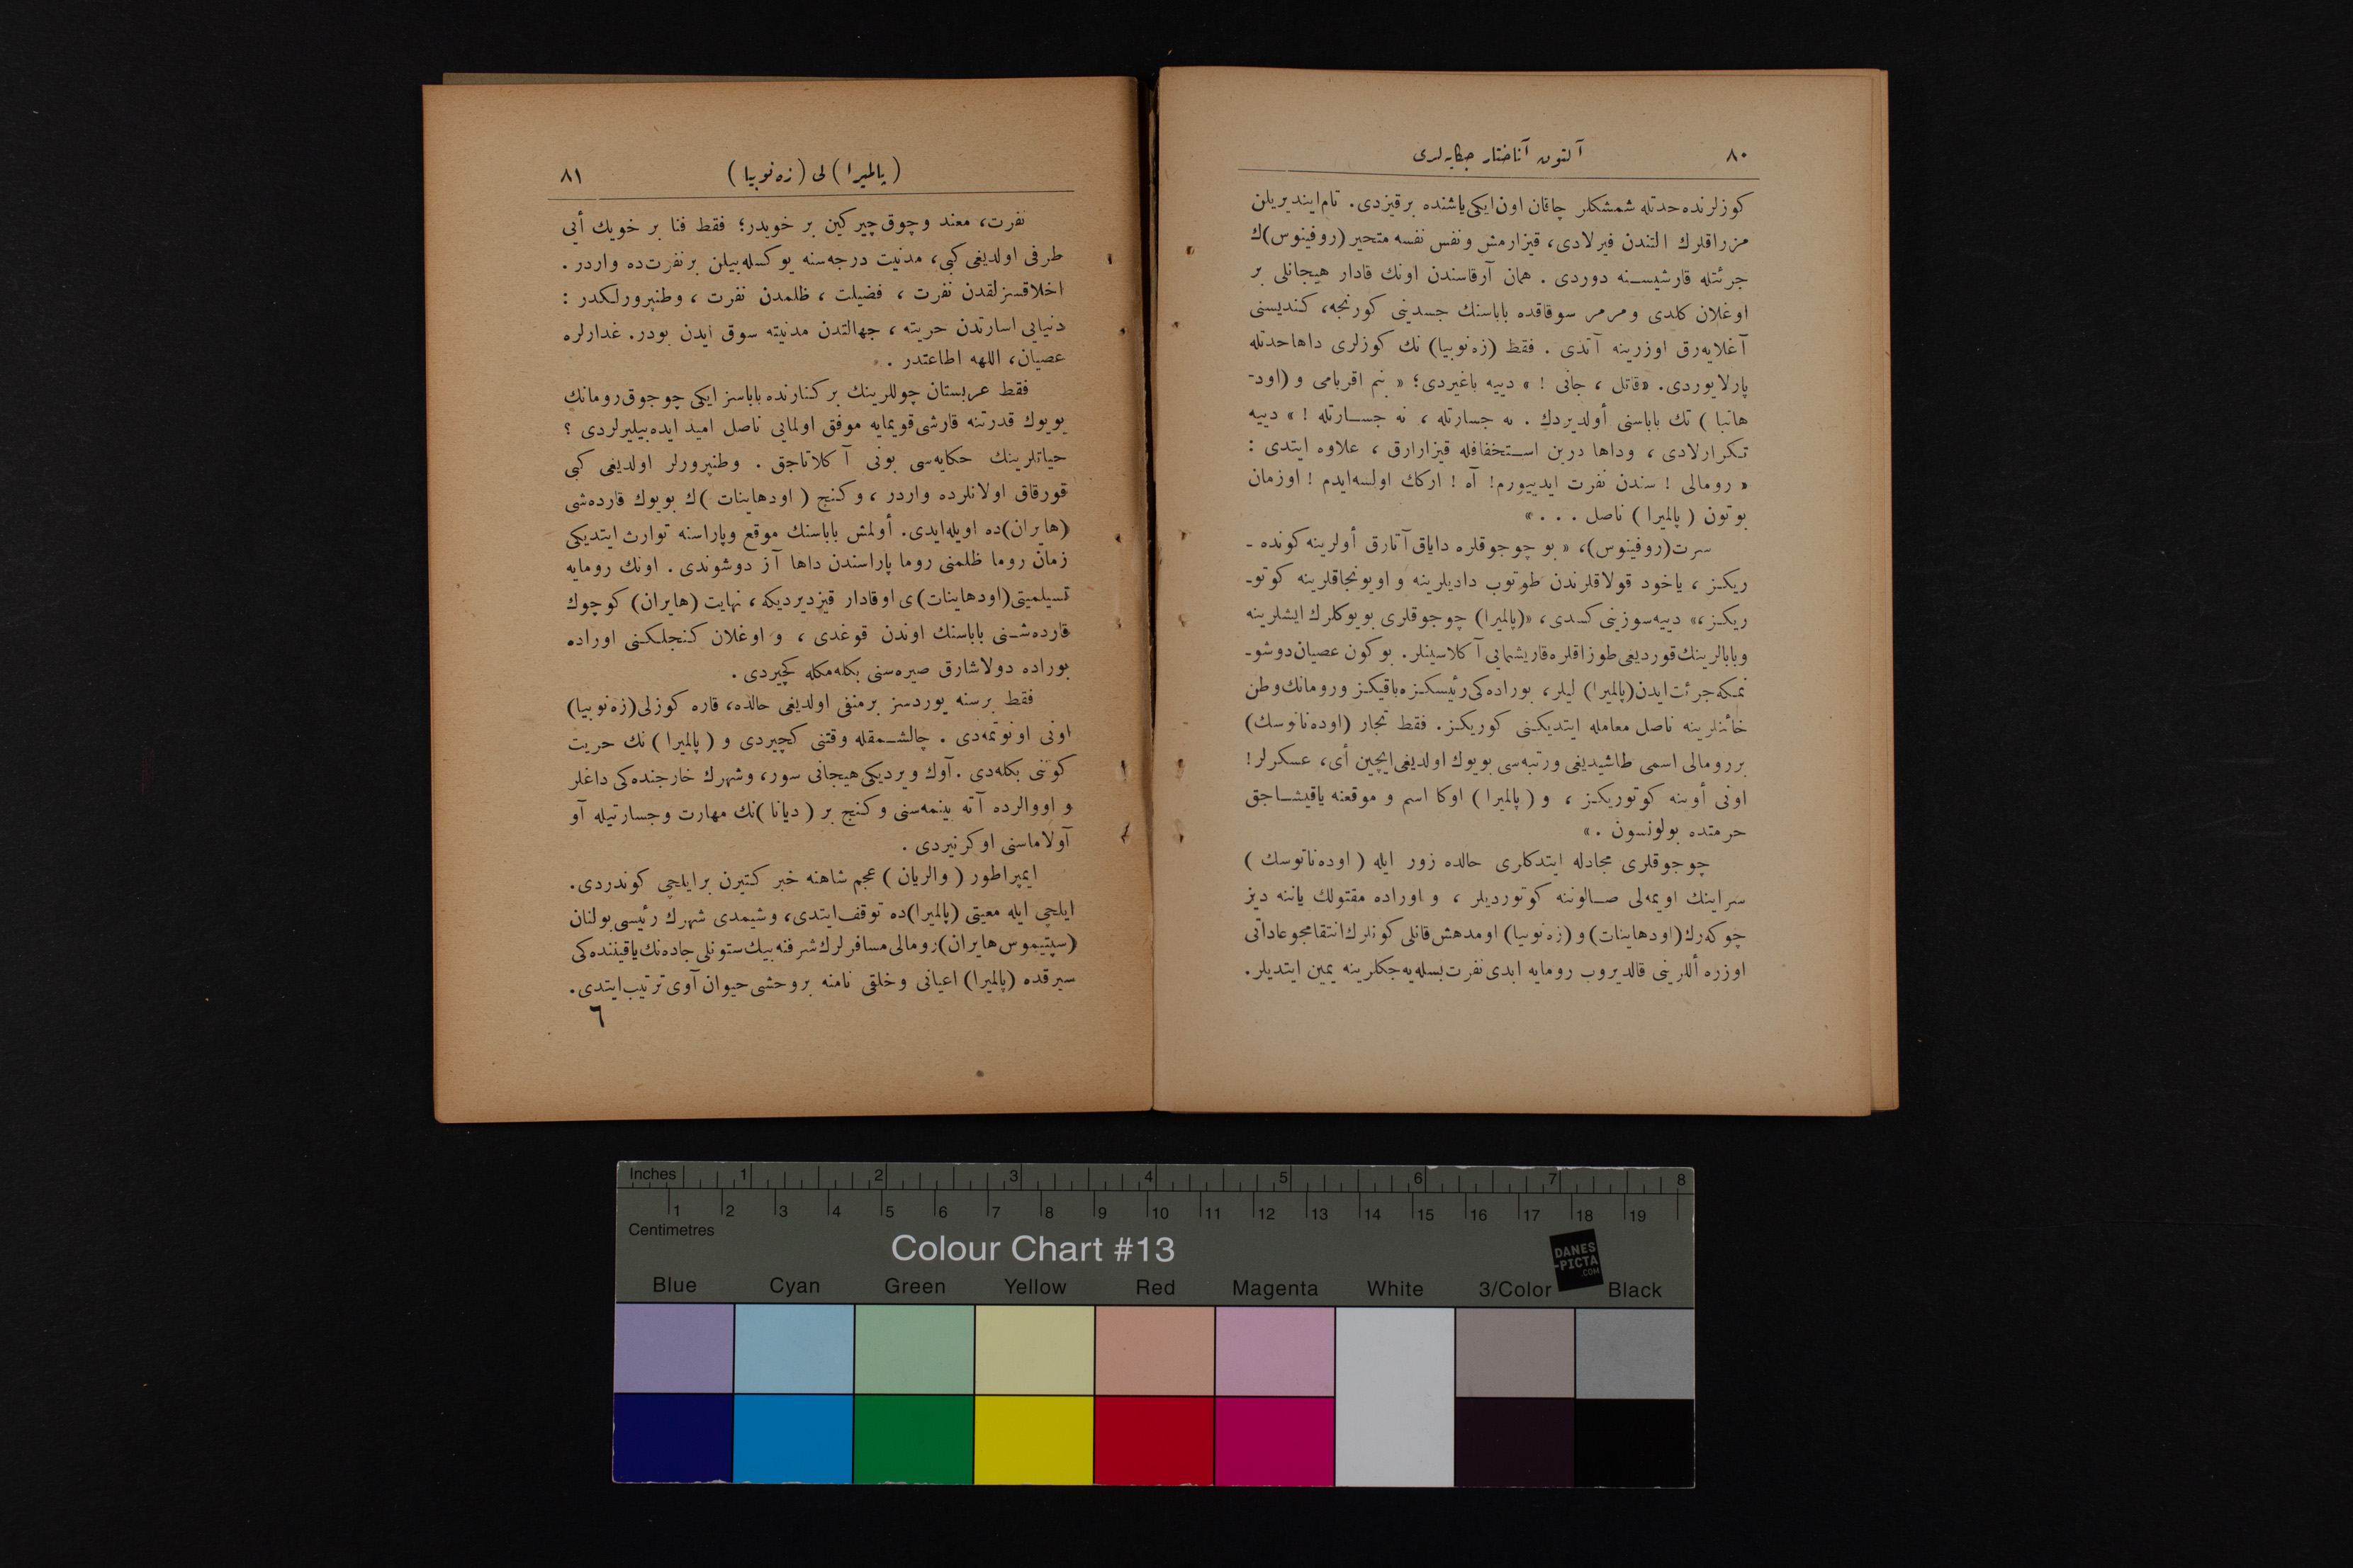 ٨٠
آلتون آناختار حكایه‌لری
كوزلرنده حدتله شمشكلر چاقان اون ایكی یاشنده بر قیزدی. تام ایندیریلن
مزراقلرك التندن فیرلادی، قیزارمش و نفس نفسه متحیر (روفینوس)ك
جرئتله قارشیسنه دوردی . همان آرقاسندن اونك قادار هیجانلی بر
اوغلان كلدی و مرمر سوقاقده باباسنك جسدینی كورنجه، كندیسنی
آغلایه‌رق اوزرینه آتدی . فقط (زه‌نوبیا) نك كوزلری داها حدتله
پارلایوردی. «قاتل ، جانی ! » دییه باغیردی؛ « بنم اقربامی و (اود-
هانبا ) تك باباسنی أولدیردك . نه جسارتله ، نه جسارتله ! » دییه
تكرارلادی ، وداها درین استخفافله قیزارارق ، علاوه ایتدی :
« رومالی ! سندن نفرت ایدییورم! آه ! اركك اولسه‌ایدم ! اوزمان
بوتون ( پالمیرا ) ناصل . . . »
سرت(روفینوس)، « بو چوجوقلره دایاق آتارق أولرینه كونده -
ریكز ، یاخود قولاقلرندن طوتوب دادیلرینه و اویونجاقلرینه كوتو-
ریكز،» دییه سوزینی كسدی، «(پالمیرا) چوجوقلری بویوكلرك ایشلرینه
وبابالرینك قوردیغی طوزاقلره قاریشمایی آكلاسینلر. بو كون عصیان دوشو-
نمكه جرئت ایدن(پالمیرا) لیلر، بوراده‌كی رئیسكزه باقیكز ورومانك وطن
خائنلرینه ناصل معامله ایتدیكنی كوریكز. فقط تجار (اوده‌ناتوسك)
بر رومالی اسمی طاشیدیغی ورتبه‌سی بویوك اولدیغی ایچین أی، عسكرلر!
اونی أوینه كوتوریكز ، و ( پالمیرا ) اوكا اسم و موقعنه یاقیشاجق
حرمتده بولونسون .»
چوجوقلری مجادله ایتدكلری حالده زور ایله ( اوده‌ناتوسك )
سراینك اویمه‌لی صالوننه كوتوردیلر ، و اوراده مقتولك یاننه دیز
چوكه‌رك(اودهاینات) و (زه‌نوبیا) اومدهش قانلی كونلرك انتقامجو عاداتی
اوزره أللرینی قالدیروب رومایه ابدی نفرت بسله‌یه‌جكلرینه یمین ایتدیلر.
(پالمیرا) لی (زه‌نوبیا)
٨١
نفرت، معند وچوق چیركین بر خویدر؛ فقط فنا بر خویك أیی
طرفی اولدیغی كبی، مدنیت درجه‌سنه یوكسله‌بیلن بر نفرت‌ده واردر .
اخلاقسزلقدن نفرت ، فضیلت ، ظلمدن نفرت ، وطنپرورلكدر :
دنیایی اسارتدن حریته ، جهالتدن مدنیته سوق ایدن بودر. غدارلره
عصیان، اللهه اطاعتدر .
فقط عربستان چوللرینك بر كنارنده باباسز ایكی چوجوق رومانك
بویوك قدرتنه قارشی قویمایه موفق اولمایی ناصل امید ایده‌بیلیرلردی ؟
حیاتلرینك حكایه‌سی بونی آكلاتاجق . وطنپرورلر اولدیغی كبی
قورقاق اولانلرده واردر ، وكنج ( اودهاینات )ك بویوك قارده‌شی
(هایران)ده اویله‌ایدی. أولمش باباسنك موقع وپاراسنه توارث ایتدیكی
زمان روما ظلمنی روما پاراسندن داها آز دوشوندی . اونك رومایه
تسیلمیتی(اودهاینات)ی اوقادار قیزدیردیكه، نهایت (هایران) كوچوك
قارده‌شنی باباسنك اوندن قوغدی ، و اوغلان كنجلكنی اوراده
بوراده دولاشارق صیره‌سنی بكله‌مكله كچیردی .
فقط برسنه یوردسز برمنفی اولدیغی حالده، قاره كوزلی(زه‌نوبیا)
اونی اونوتمه‌دی . چالشمقله وقتنی كچیردی و ( پالمیرا ) نك حریت
كوننی بكله‌دی . آوك ویردیكی هیجانی سور، وشهرك خارجنده‌كی داغلر
و اووالرده آته بینمه‌سنی وكنج بر ( دیانا )نك مهارت وجسارتیله آو
آولاماسنی اوكرنیردی .
ایمپراطور ( والریان ) عجم شاهنه خبر كتیرن بر ایلچی كوندردی.
ایلچی ایله معیتی (پالمیرا)ده توقف ایتدی، وشیمدی شهرك رئیسی بولنان
(سپتیموس هایران)رومالی مسافرلرك شرفنه بیك ستونلی جاده‌نك یاقیننده‌كی
سیرقده (پالمیرا) اعیانی وخلقی نامنه بر وحشی حیوان آوی ترتیب ایتدی.
٦
Inches 1 2 3 4 5 6 7 8
1 2 3 4 5 6 7 8 9 10 11 12 13 14 15 16 17 18 19
Centimetres
Colour Chart #13
DANES
-PICTA
.COM
Blue Cyan Green Yellow Red Magenta White 3/Color Black